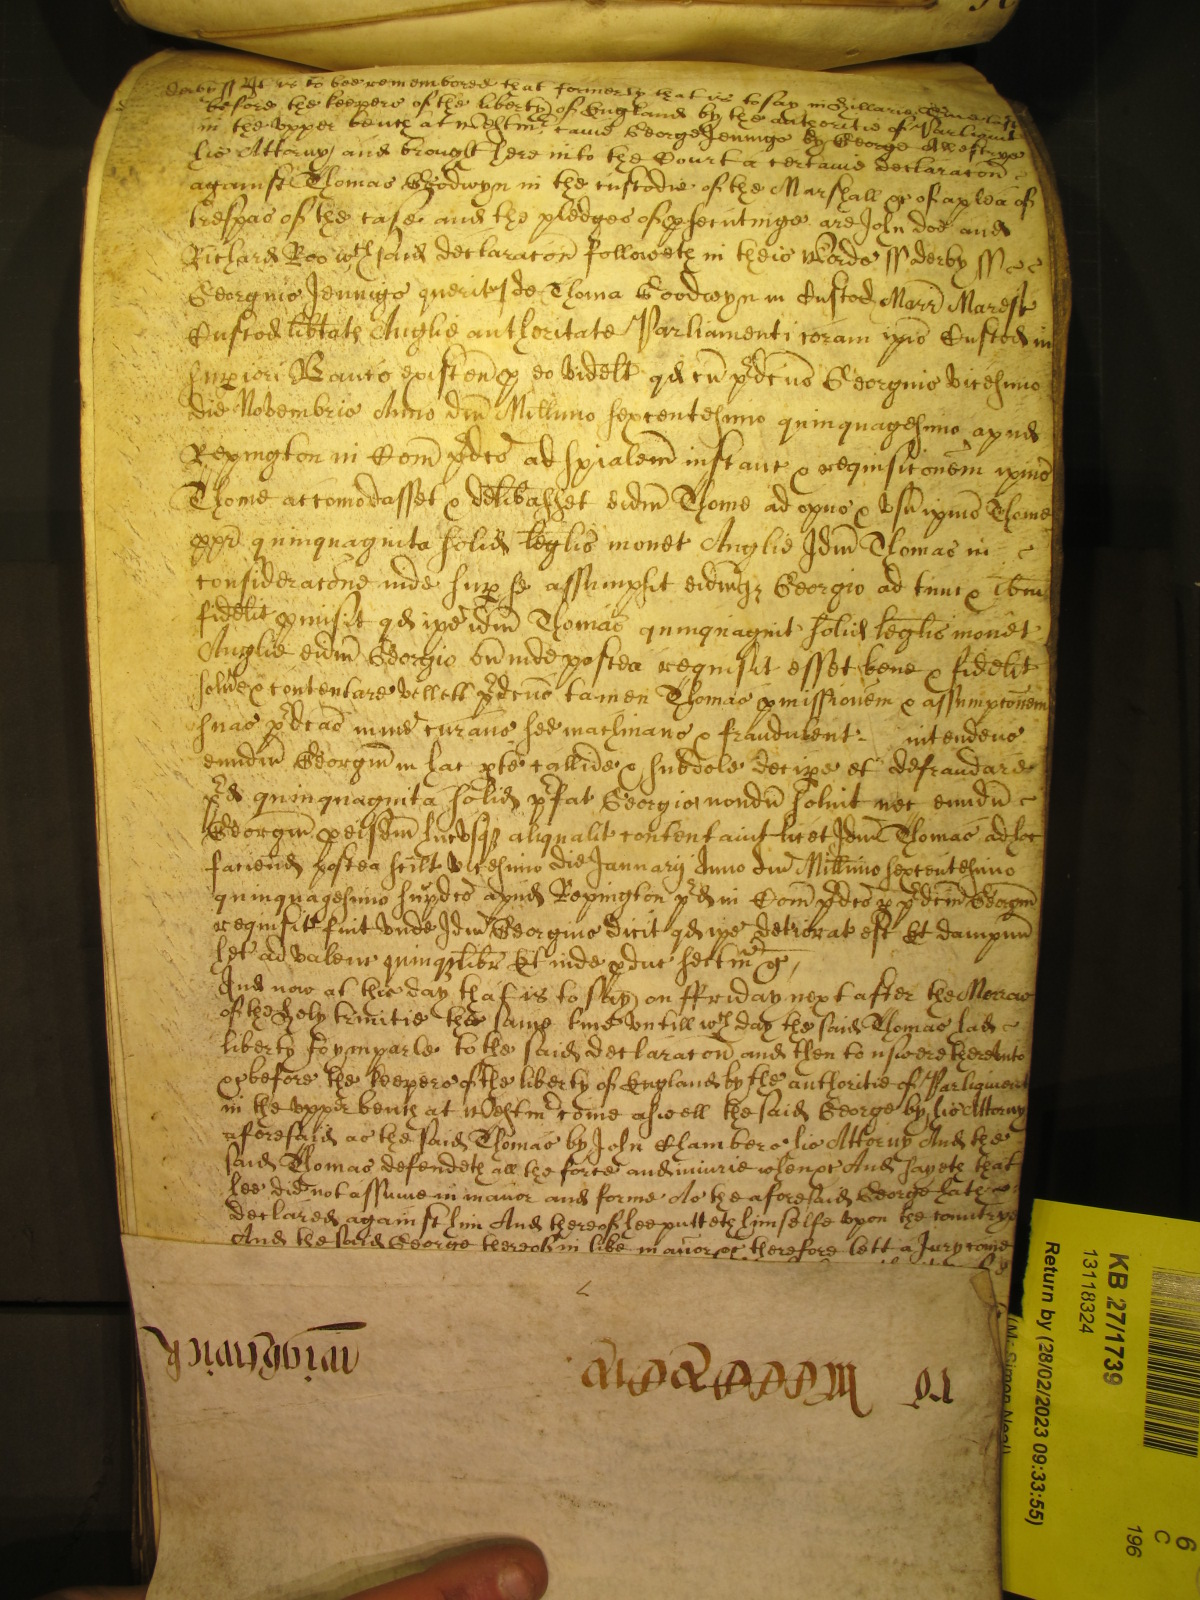 derby ss It is to bee remembored that formerly that is to say in Hillarie Tearme last
before the keepers of the liberty of England by the authoritie of Parliamt
in the upper bench at Westmr came George Jennings by George
his Attorny and brought here into the Court a certaine declaracon
against Thomas Goodwyn in the custodie of the Marshall &c of a plea of
trespas of the case and the pledges of psecutinge are John doe and
Richard Roo wch said declaracon followeth in theis words ss derby ss
Georgius Jennings queritr de Thoma Goodwyn in Custod Marr Maresc
Custod libtatis Anglie authoritate Parliamenti coram ipis Custod in
supiori Banco existen p eo videlt qd cu pdcus Georgius vicesimo
die Novembris Anno dni Millimo sexcentesimo quinquagesimo apud
Repington in Com pdco ad spialem instanc & requisiconem ipius
Thome accomodasset & delibasset eidm Thome ad opus & usu ipius Thome
ppr quinquaginta solid leglis monet Anglie Idm Thomas in
consideracone inde sup se assumpsit eidmqz Georgio ad tunc & ibm
fidelit pmisit qd ipe idm Thomas quinquagint solid leglis monet
Anglie eidm Georgio cu inde postea requisit esset bene & fidelit
solve & contentare vellet pdcus tamen Thomas pmissionem & assumpconem
suas pdcas minime curans sed machinans & fraudulent intendens
eundm Georgiu in hac pte callide & subdole decipe et defraudare
pd quinquaginta solid pfat Georgio nondu solvit nec eundm
Georgiu p eisdm hucusqz aliqualit contentavit licet Idm Thomas ad hoc
faciend postea scilt vicesimo die Januarij Anno dni Millimo sexcentesimo
quinquagesimo supdco apud Repington pd in Com pdco p pdcm Georgiu
requisit fuit unde Idm Georgius dicit qd ipe detiorat est Et dampnu
het ad valenc quinqz libr Et inde pduc sectm &c
And now at this day that is to say on ffriday next after the Morrow
of the holy trinitie the same time untill wch day the said Thomas had
liberty to ymparle to the said declaracon and then to answere thereunto
&c before the keepers of the liberty of England by the authoritie of Parliament
in the upper bench at Westmr come aswell the said George by his Attorny
aforesaid as the said Thomas by John Chambers his Attorny And the
said Thomas defendeth all the force and iniurie when &c And sayeth that
hee did not assume in manor and forme As the aforesaid George hath
declared against him And thereof hee putteth himselfe upon the countrye
And the said George thereof in like manor &c therefore lett a Jury come
Wightwick
ro
KB 27/1739
13118324
Return by (28/02/2023 09:33:55)
(Mr Simon Neal)
6
C
196